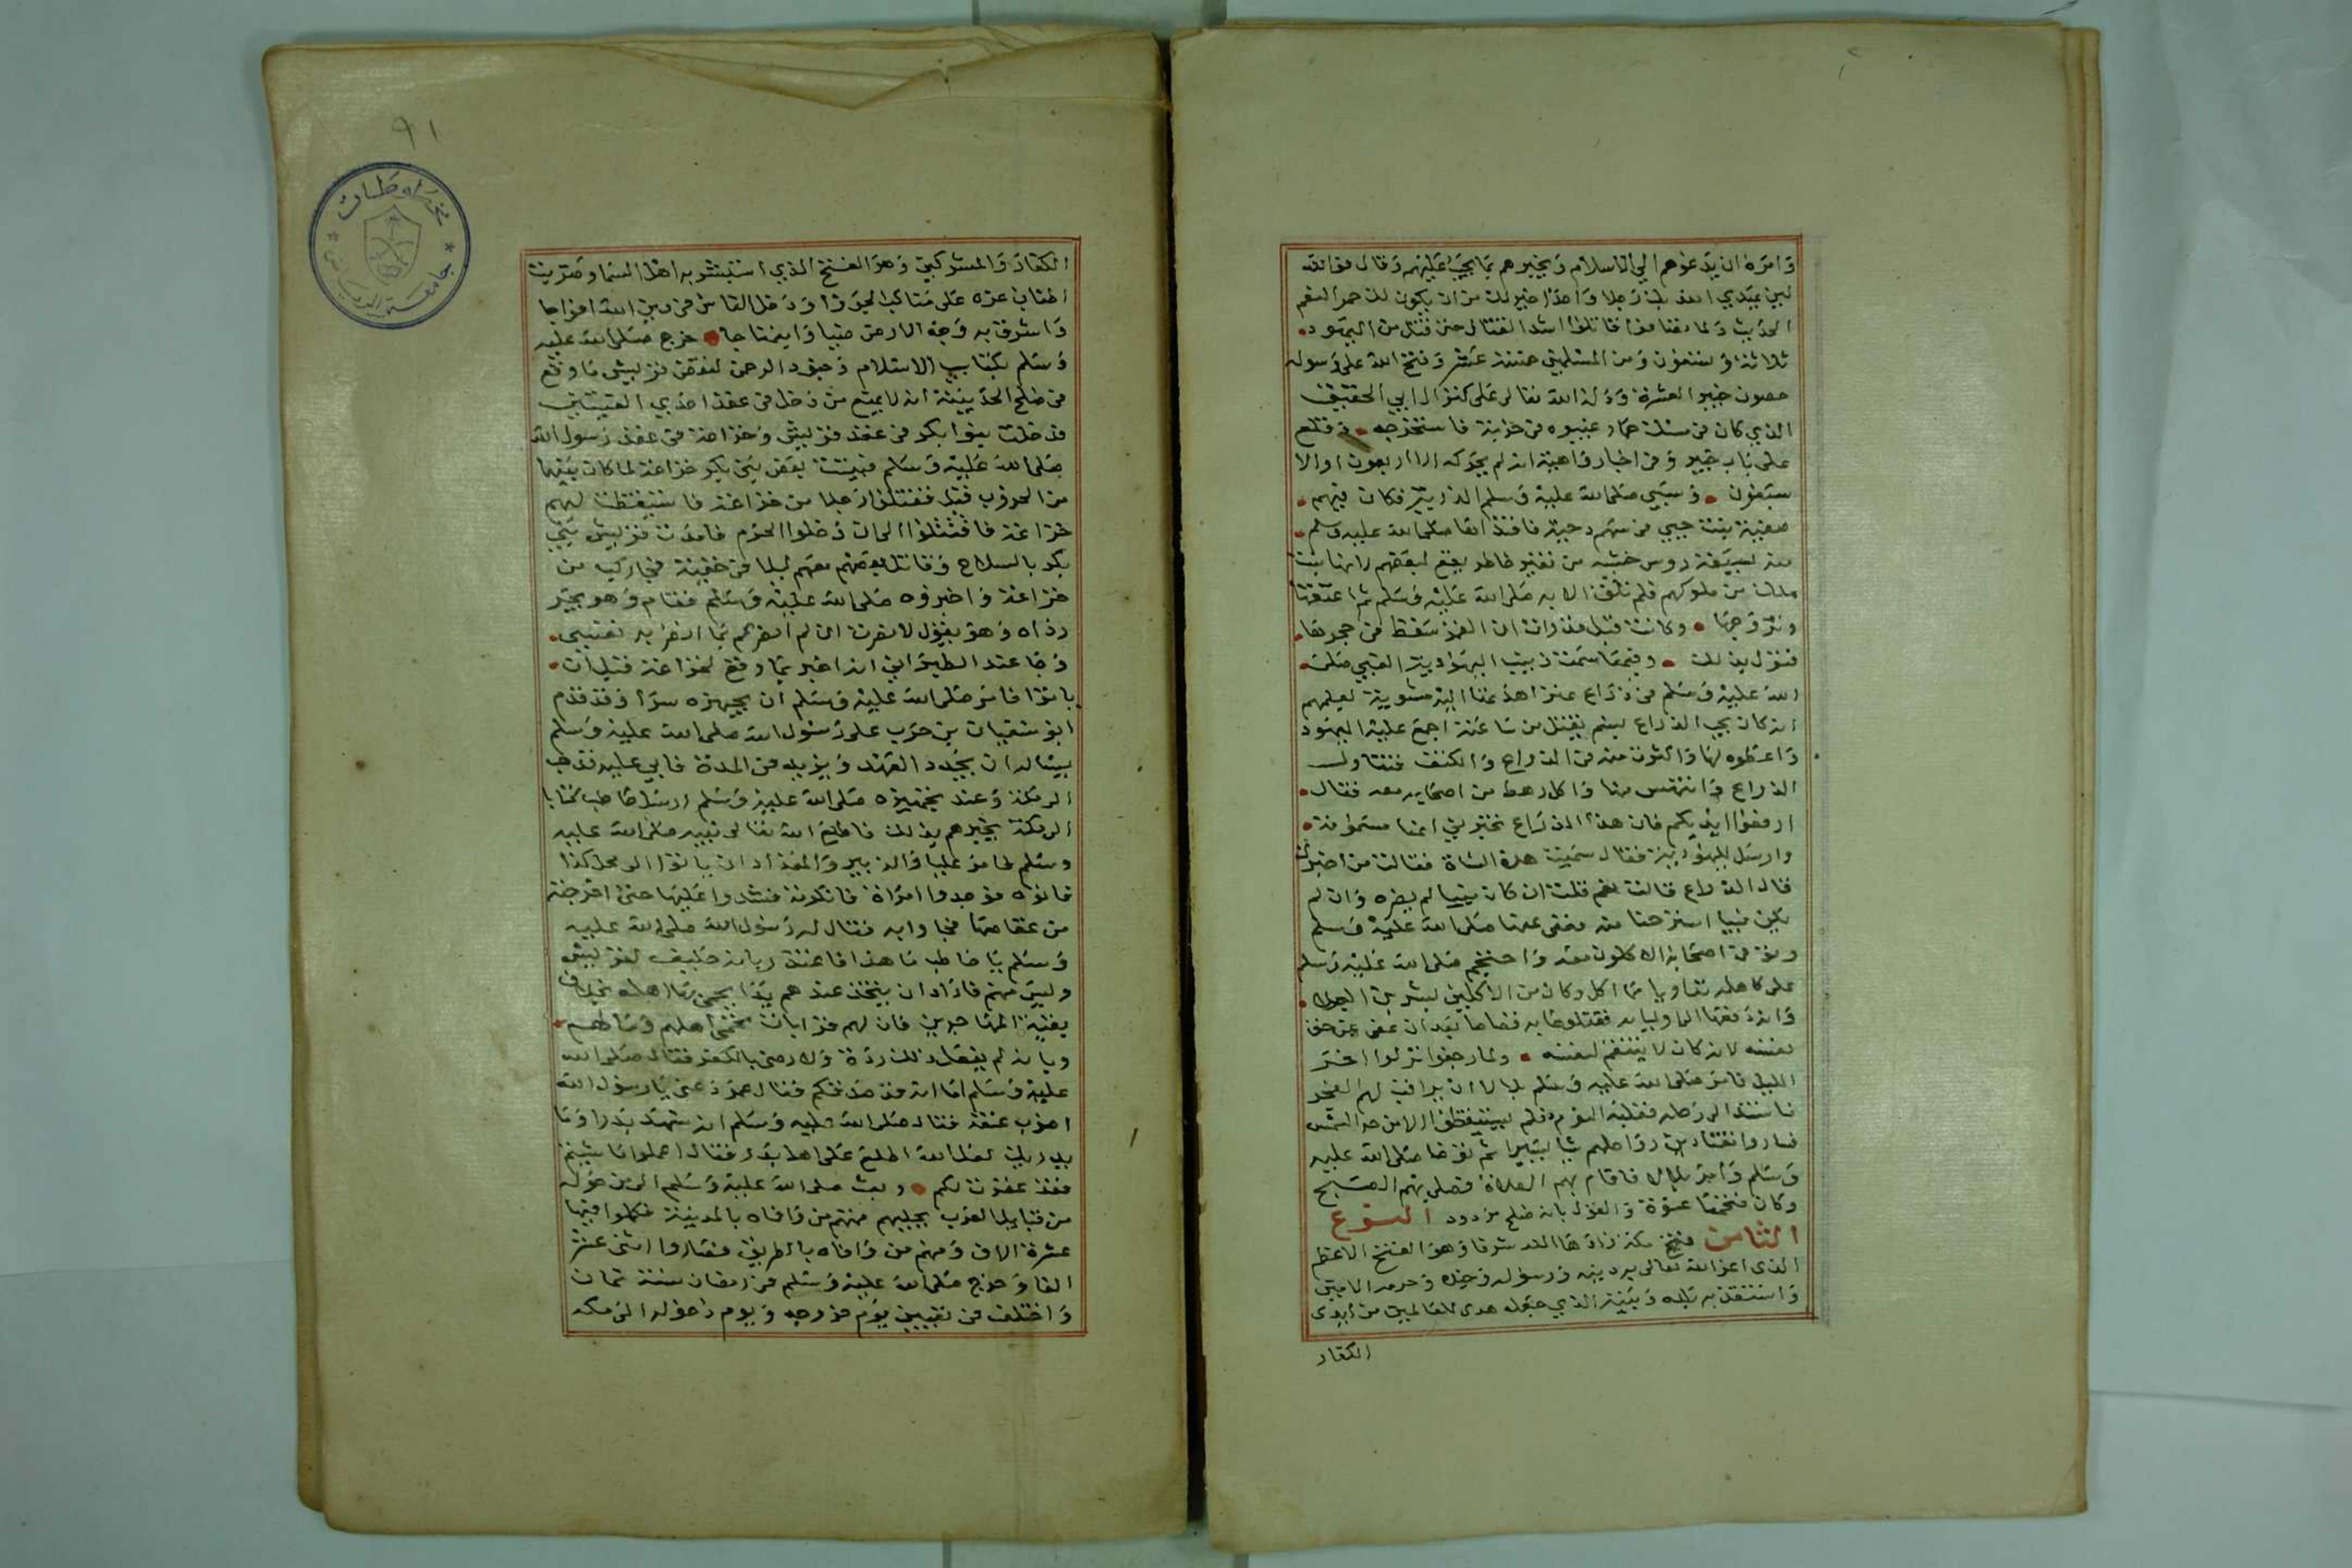 وامره ان يدعوهم الي الاسلام ويخبرهم بما يجب عليهم وقال فوالله
لين يهدي الله بك رجلا واحدا خير لك من ان يكون لك حمر النعم
الحديث ولما دفنا منها قاتلوا اشد القتال حتى قتل من اليهود
ثلاثة وتسعون ومن المسلمين خمسة عشر وفتح الله على رسوله
حصون خيبر العشرة ودله الله تعالى على كنز ال ابي الحقيق
الذي كان في مسك حمار غيبوه في خربة فاستخرجه وقلع
على باب خيبر وفي اخبار واهية انه لم يحركه الا اربعون او الا
سبعون وسبي صلى الله عليه وسلم الذرية فكان فيهم
صفية بنت حيي في سهم دحية فافتداها صلى الله عليه وسلم
منه بسبعة روس خشية من تغير خاطر بقع لبعضهم لانها بنت
ملك من ملوكهم فلم تلق الا به صلى الله عليه وسلم ثم اعتقها
وتزوجها وكانت قبل قد رات ان القمر سقط في حجرها
فتؤول بذلك وفيها سمت زينب اليهودية النبي صلى
الله عليه وسلم في ذراع عنز اهدتها اليه مشوية لعلمهم
انه كان يحب الذراع بسم يقتل من ساعته اجمع عليه اليهود
واعطوه لها واكثرت منه في الذراع والكتف فتناول
الذراع وانتهس منها واكل رهط من اصحابه معه فقال
ارفعوا ايديكم فان هذا الذراع تخبرني انها مسمومة
وارسل لليهودية فقال سميت هذه الشاة فقالت من اخبرك
قال الذراع قالت نعم قلت ان كان نبيا لم يضره وان لم
يكن نبيا استرحنا منه فعفى عنها صلى الله عليه وسلم
وتوفي اصحابه الاكلون معه واحتجم صلى الله عليه وسلم
على كاهله تداويا مما اكل وكان من الاكلين بشر بن البراء
وانه دفعها الى اوليايه فقتلوها به قصاصا بعد ان عفى عن حق
نفسه لانه كان لا ينتقم لنفسه ولما رجعوا نزلوا اخر
الليل فامر صلى الله عليه وسلم بلالا ان يراقب لهم الفجر
فاستند الى رحله فغلبه النوم فلم يستيقظوا الا من حر الشمس
فساروا نقتاد بن رواحلهم شيا يسيرا ثم توضا صلى الله عليه
وسلم وامر بلالا فاقام بهم الصلاة فصلى بهم الصبح
وكان فتحها عنوة والقول بانه صلح مردود النوع
الثامن فتح مكة زادها الله شرفا وهو الفتح الاعظم
الذي اعز الله تعالى به دينه ورسوله وجنده وحرمه الامين
واستنقذ به بلده وبيته الذي جعله هدى للعالمين من ايدى
الكفار
٩١
مخطوطات
جامعة الرياض
الكفار والمشركين وهو الفتح الذي استبشر به اهل السما وضربت
اطناب عزه على مناكب الجوزا ودخل الناس في دين الله افواجا
واشرق به وجه الارض ضيا وابتهاجا خرج صلى الله عليه
وسلم بكتايب الاسلام وجنود الرحمن لنقض قريش ما وقع
في صلح الحديبية انه لا يمنع من دخل في عقد احدي الفيتين
فدخلت بنوا بكر في عقد قريش وخزاعة في عقد رسول الله
صلى الله عليه وسلم فبيت بعض بني بكر خزاعة لما كان بينهما
من الحروب قبل فقتلوا رجلا من خزاعة فاستيقظت لهم
خزاعة فاقتتلوا الى ان دخلوا الحرم فامدت قريش بني
بكر بالسلاح وقاتل بعضهم معهم ليلا في خفية فجا ركب من
خزاعة واخبروه صلى الله عليه وسلم فقام وهو يجر
رداه وهو يقول لا نصرت ان لم انصركم بما انصر به نفسي
وجا عند الطبراني انه اخبر بما وقع لخزاعة قبل ان
ياتوا فامر صلى الله عليه وسلم ان يجهزه سرا وقد قدم
ابو سفيان بن حرب على رسول الله صلى الله عليه وسلم
يساله ان يجدد العهد ويزيد في المدة فابي عليه فذهب
الى مكة وعند تجهيزه صلى الله عليه وسلم ارسل حاطب كتابا
الى مكة يخبرهم بذلك فاطلع الله تعالى نبيه صلى الله عليه
وسلم فامر عليا والزبير والمقداد ان ياتوا الى محل كذا
فاتوه فوجدوا امراة فانكرته فشددوا عليها حتى اخرجته
من عقاصها فجاوا به فقال له رسول الله صلى الله عليه
وسلم يا حاطب ما هذا فاعتذر بانه حليف لقريش
وليس منهم فاراد ان يتخذ عندهم يدا يحمى بها اهله بخلاف
بقية المهاجرين فان لهم قرابات تحمى اهلهم
وبانه لم يفعل ذلك ردة ولا رضى بالكفر فقال صلى الله
عليه وسلم اما انه قد صدقكم فقال عمر دعني يا رسول الله
اضرب عنقه فقال صلى الله عليه وسلم انه شهد بدرا وما
يدريك لعل الله اطلع على اهل بدر فقال اعملوا ما شيتم
فقد غفرت لكم وبعث صلى الله عليه وسلم الى من حوله
من قبايل العرب يجلبهم فمنهم من وافاه بالمدينة فكملوا فيها
عشرة الاف ومنهم من وافاه بالطريق فصاروا اثنى عشر
الفا وخرج صلى الله عليه وسلم في رمضان سنة ثمان
واختلف في تعيين يوم خروجه ويوم دخوله الى مكة